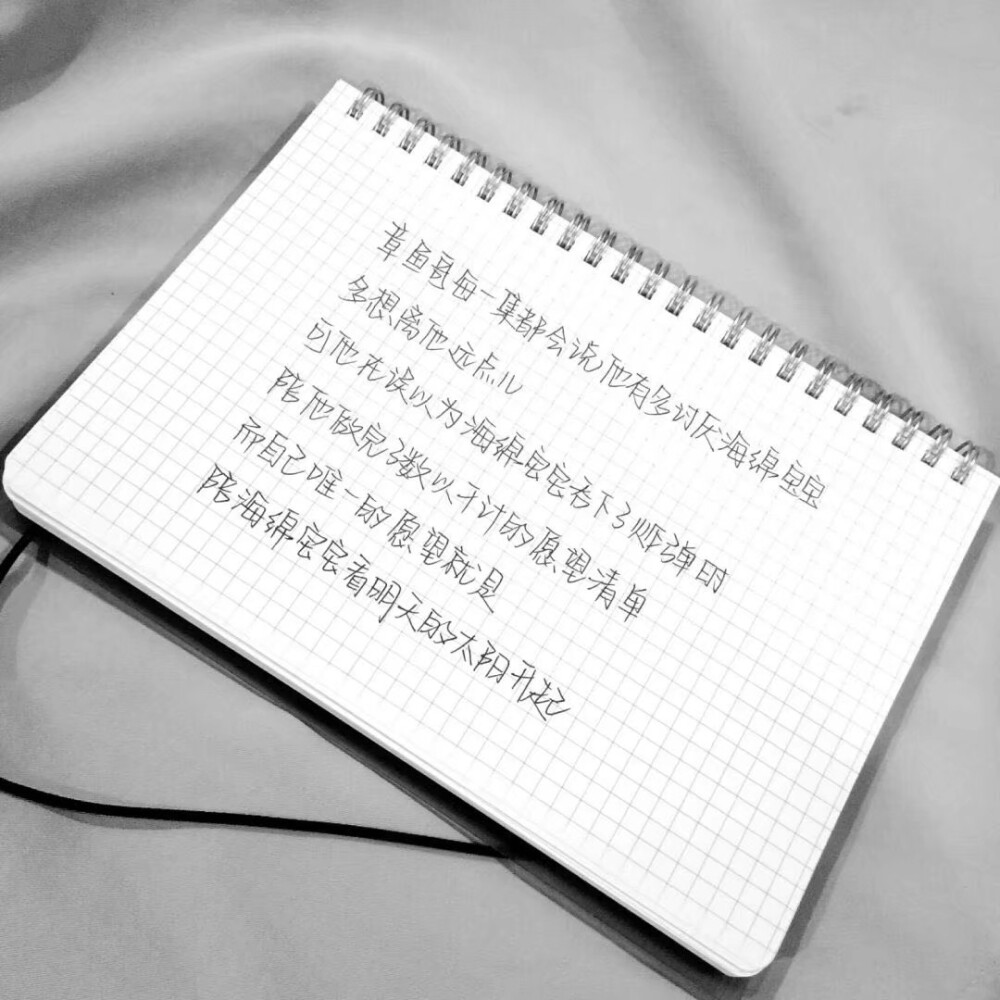 章鱼哥每一集都会说他有多讨厌海绵宝宝
多想离他远点儿
可他在误以为海绵宝宝吞下了炸弹时
陪他做完了数以千计的愿望清单
而自己唯一的愿望就是
陪海绵宝宝看明天的太阳升起